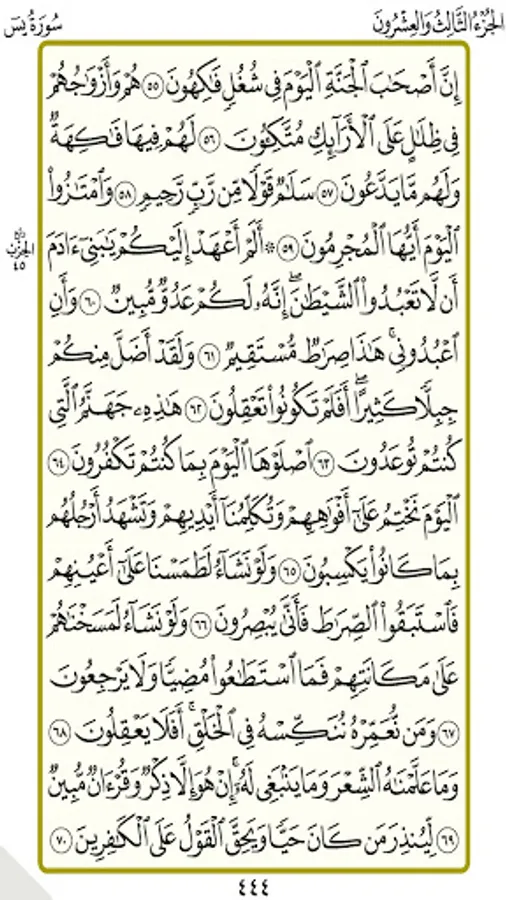 الجزء الثالث والعشرون
سورة يس
إِنَّ أَصْحَٰبَ ٱلْجَنَّةِ ٱلْيَوْمَ فِى شُغُلٍ فَٰكِهُونَ ٥٥ هُمْ وَأَزْوَٰجُهُمْ
فِى ظِلَٰلٍ عَلَى ٱلْأَرَآئِكِ مُتَّكِـُٔونَ ٥٦ لَهُمْ فِيهَا فَٰكِهَةٌ
وَلَهُم مَّا يَدَّعُونَ ٥٧ سَلَٰمٌ قَوْلًا مِّن رَّبٍّ رَّحِيمٍ ٥٨ وَٱمْتَٰزُوا۟
ٱلْيَوْمَ أَيُّهَا ٱلْمُجْرِمُونَ ٥٩ ۞ أَلَمْ أَعْهَدْ إِلَيْكُمْ يَٰبَنِىٓ ءَادَمَ
ربع
الحزب
٤٥
أَن لَّا تَعْبُدُوا۟ ٱلشَّيْطَٰنَ ۖ إِنَّهُۥ لَكُمْ عَدُوٌّ مُّبِينٌ ٦٠ وَأَنِ
ٱعْبُدُونِى ۚ هَٰذَا صِرَٰطٌ مُّسْتَقِيمٌ ٦١ وَلَقَدْ أَضَلَّ مِنكُمْ
جِبِلًّا كَثِيرًا ۖ أَفَلَمْ تَكُونُوا۟ تَعْقِلُونَ ٦٢ هَٰذِهِۦ جَهَنَّمُ ٱلَّتِى
كُنتُمْ تُوعَدُونَ ٦٣ ٱصْلَوْهَا ٱلْيَوْمَ بِمَا كُنتُمْ تَكْفُرُونَ ٦٤
ٱلْيَوْمَ نَخْتِمُ عَلَىٰٓ أَفْوَٰهِهِمْ وَتُكَلِّمُنَآ أَيْدِيهِمْ وَتَشْهَدُ أَرْجُلُهُم
بِمَا كَانُوا۟ يَكْسِبُونَ ٦٥ وَلَوْ نَشَآءُ لَطَمَسْنَا عَلَىٰٓ أَعْيُنِهِمْ
فَٱسْتَبَقُوا۟ ٱلصِّرَٰطَ فَأَنَّىٰ يُبْصِرُونَ ٦٦ وَلَوْ نَشَآءُ لَمَسَخْنَٰهُمْ
عَلَىٰ مَكَانَتِهِمْ فَمَا ٱسْتَطَٰعُوا۟ مُضِيًّا وَلَا يَرْجِعُونَ
٦٧ وَمَن نُّعَمِّرْهُ نُنَكِّسْهُ فِى ٱلْخَلْقِ ۖ أَفَلَا يَعْقِلُونَ ٦٨
وَمَا عَلَّمْنَٰهُ ٱلشِّعْرَ وَمَا يَنۢبَغِى لَهُۥٓ ۚ إِنْ هُوَ إِلَّا ذِكْرٌ وَقُرْءَانٌ مُّبِينٌ
٦٩ لِّيُنذِرَ مَن كَانَ حَيًّا وَيَحِقَّ ٱلْقَوْلُ عَلَى ٱلْكَٰفِرِينَ ٧٠
٤٤٤